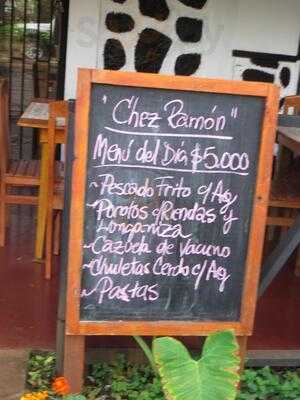 "Chez Ramón"
Menú del Día $5.000
~Pescado Frito c/Ag
~Porotos c/Riendas y
Longaniza
~Cazuela de Vacuno
~Chuletas Cerdo c/Ag
~Pastas